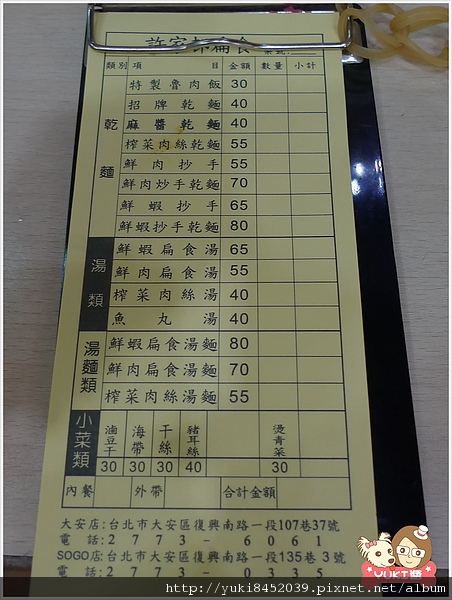 許家 扁食
類別 項目 金額 數量 小計
乾麵
特製魯肉飯 30
招牌乾麵 40
麻醬乾麵 40
榨菜肉絲乾麵 55
鮮肉抄手 55
鮮肉炒手乾麵 70
鮮蝦抄手 65
鮮蝦抄手乾麵 80
湯類
鮮蝦扁食湯 65
鮮肉扁食湯 55
榨菜肉絲湯 40
魚丸湯 40
湯麵類
鮮蝦扁食湯麵 80
鮮肉扁食湯麵 70
榨菜肉絲湯麵 55
小菜類
滷豆干 海帶 干絲 豬耳絲 燙青菜
30 30 30 40 30
內餐 外帶 合計金額
大安店:台北市大安區復興南路一段107巷37號
電話:2773-6061
SOGO店:台北市大安區復興南路一段135巷3號
電話:2773-0335
YUKI醬
http://yuki8452039.pixnet.net/album